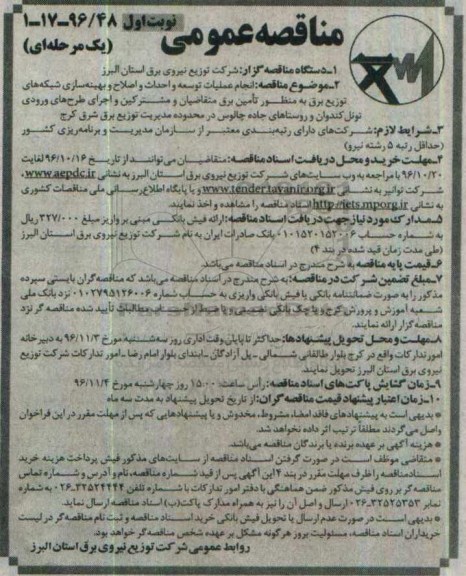 مناقصه عمومی
نوبت اول ۹۶/۴۸-۱۷-۱
(یک مرحله‌ای)
۱-دستگاه مناقصه گزار: شرکت توزیع نیروی برق استان البرز
۲-موضوع مناقصه: انجام عملیات توسعه و احداث و اصلاح و بهینه‌سازی شبکه‌های
توزیع برق به منظور تأمین برق متقاضیان و مشترکین و اجرای طرح‌های ورودی
تونل کندوان و روستاهای جاده چالوس در محدوده مدیریت توزیع برق شرق کرج
۳-شرایط لازم: شرکت‌های دارای رتبه‌بندی معتبر از سازمان مدیریت و برنامه‌ریزی کشور
(حداقل رتبه ۵ رشته نیرو)
۴-مهلت خرید و محل دریافت اسناد مناقصه: متقاضیان می‌توانند از تاریخ ۹۶/۱۰/۱۶ لغایت
۹۶/۱۰/۲۰ با مراجعه به وب سایت‌های شرکت توزیع نیروی برق استان البرز به نشانی www.aepdc.ir
شرکت توانیر به نشانی www.tender.tavanir.org.ir و یا پایگاه اطلاع‌رسانی ملی مناقصات کشوری
به نشانی http://iets.mporg.ir اسناد مناقصه را مشاهده و اخذ نمایند.
۵-مدارک مورد نیاز جهت دریافت اسناد مناقصه: ارائه فیش بانکی مبنی بر واریز مبلغ ۳۲۷/۰۰۰ ریال
به شماره حساب ۰۱۰۱۵۲۰۱۵۲۰۰۶ بانک صادرات ایران به نام شرکت توزیع نیروی برق استان البرز
(طی مدت زمان قید شده در بند ۴)
۶-قیمت پایه مناقصه به شرح مندرج در اسناد مناقصه می‌باشد.
۷-مبلغ تضمین شرکت در مناقصه: به شرح مندرج در اسناد مناقصه می‌باشد که مناقصه گران بایستی سپرده
مذکور را به صورت ضمانتنامه بانکی یا فیش بانکی واریزی به حساب شماره ۰۱۰۲۷۹۵۱۲۶۰۰۶ نزد بانک ملی
شعبه آموزش و پرورش کرج و یا چک بانکی تضمینی و یا ضبط از حساب مطالبات تأیید شده مناقصه گر نزد
مناقصه گزار ارائه نمایند.
۸-مهلت و محل تحویل پیشنهادها: حداکثر تا پایان وقت اداری روز سه‌شنبه مورخ ۹۶/۱۱/۳ به دبیرخانه
امور تدارکات واقع در کرج بلوار طالقانی شمالی - پل آزادگان - ابتدای بلوار امام رضا - امور تدارکات شرکت توزیع
نیروی برق استان البرز تحویل نمایند.
۹-زمان گشایش پاکت‌های اسناد مناقصه: رأس ساعت: ۱۵:۰۰ روز چهارشنبه مورخ ۹۶/۱۱/۴
۱۰-زمان اعتبار پیشنهاد قیمت مناقصه گران: از تاریخ تحویل پیشنهاد به مدت سه ماه
* بدیهی است به پیشنهادهای فاقد امضاء، مشروط، مخدوش و یا پیشنهادهایی که پس از مهلت مقرر در این فراخوان
واصل می‌گردند مطلقاً ترتیب اثر داده نخواهد شد.
* هزینه آگهی بر عهده برنده یا برندگان مناقصه می‌باشد.
* متقاضی موظف است در صورت گرفتن اسناد مناقصه از سایت‌های مذکور فیش پرداخت هزینه خرید
اسناد مناقصه را ظرف مهلت مقرر در بند ۴ این آگهی پس از قید شماره مناقصه، نام و آدرس و شماره تماس
مناقصه گر بر روی فیش مذکور ضمن هماهنگی با دفتر امور تدارکات با شماره تلفن ۳۲۵۲۴۴۴۴-۰۲۶ به شماره
نمابر ۳۲۵۲۵۳۵۳-۰۲۶ ارسال و اصل آن را نیز به همراه مدارک پاکت (ب) اسناد مناقصه ارسال نماید.
* بدیهی است در صورت عدم ارسال یا تحویل فیش بانکی خرید اسناد مناقصه و ثبت نام مناقصه گر در لیست
خریداران اسناد مناقصه، مسئولیت بروز هرگونه مشکل بر عهده شخص مناقصه گر خواهد بود.
روابط عمومی شرکت توزیع نیروی برق استان البرز